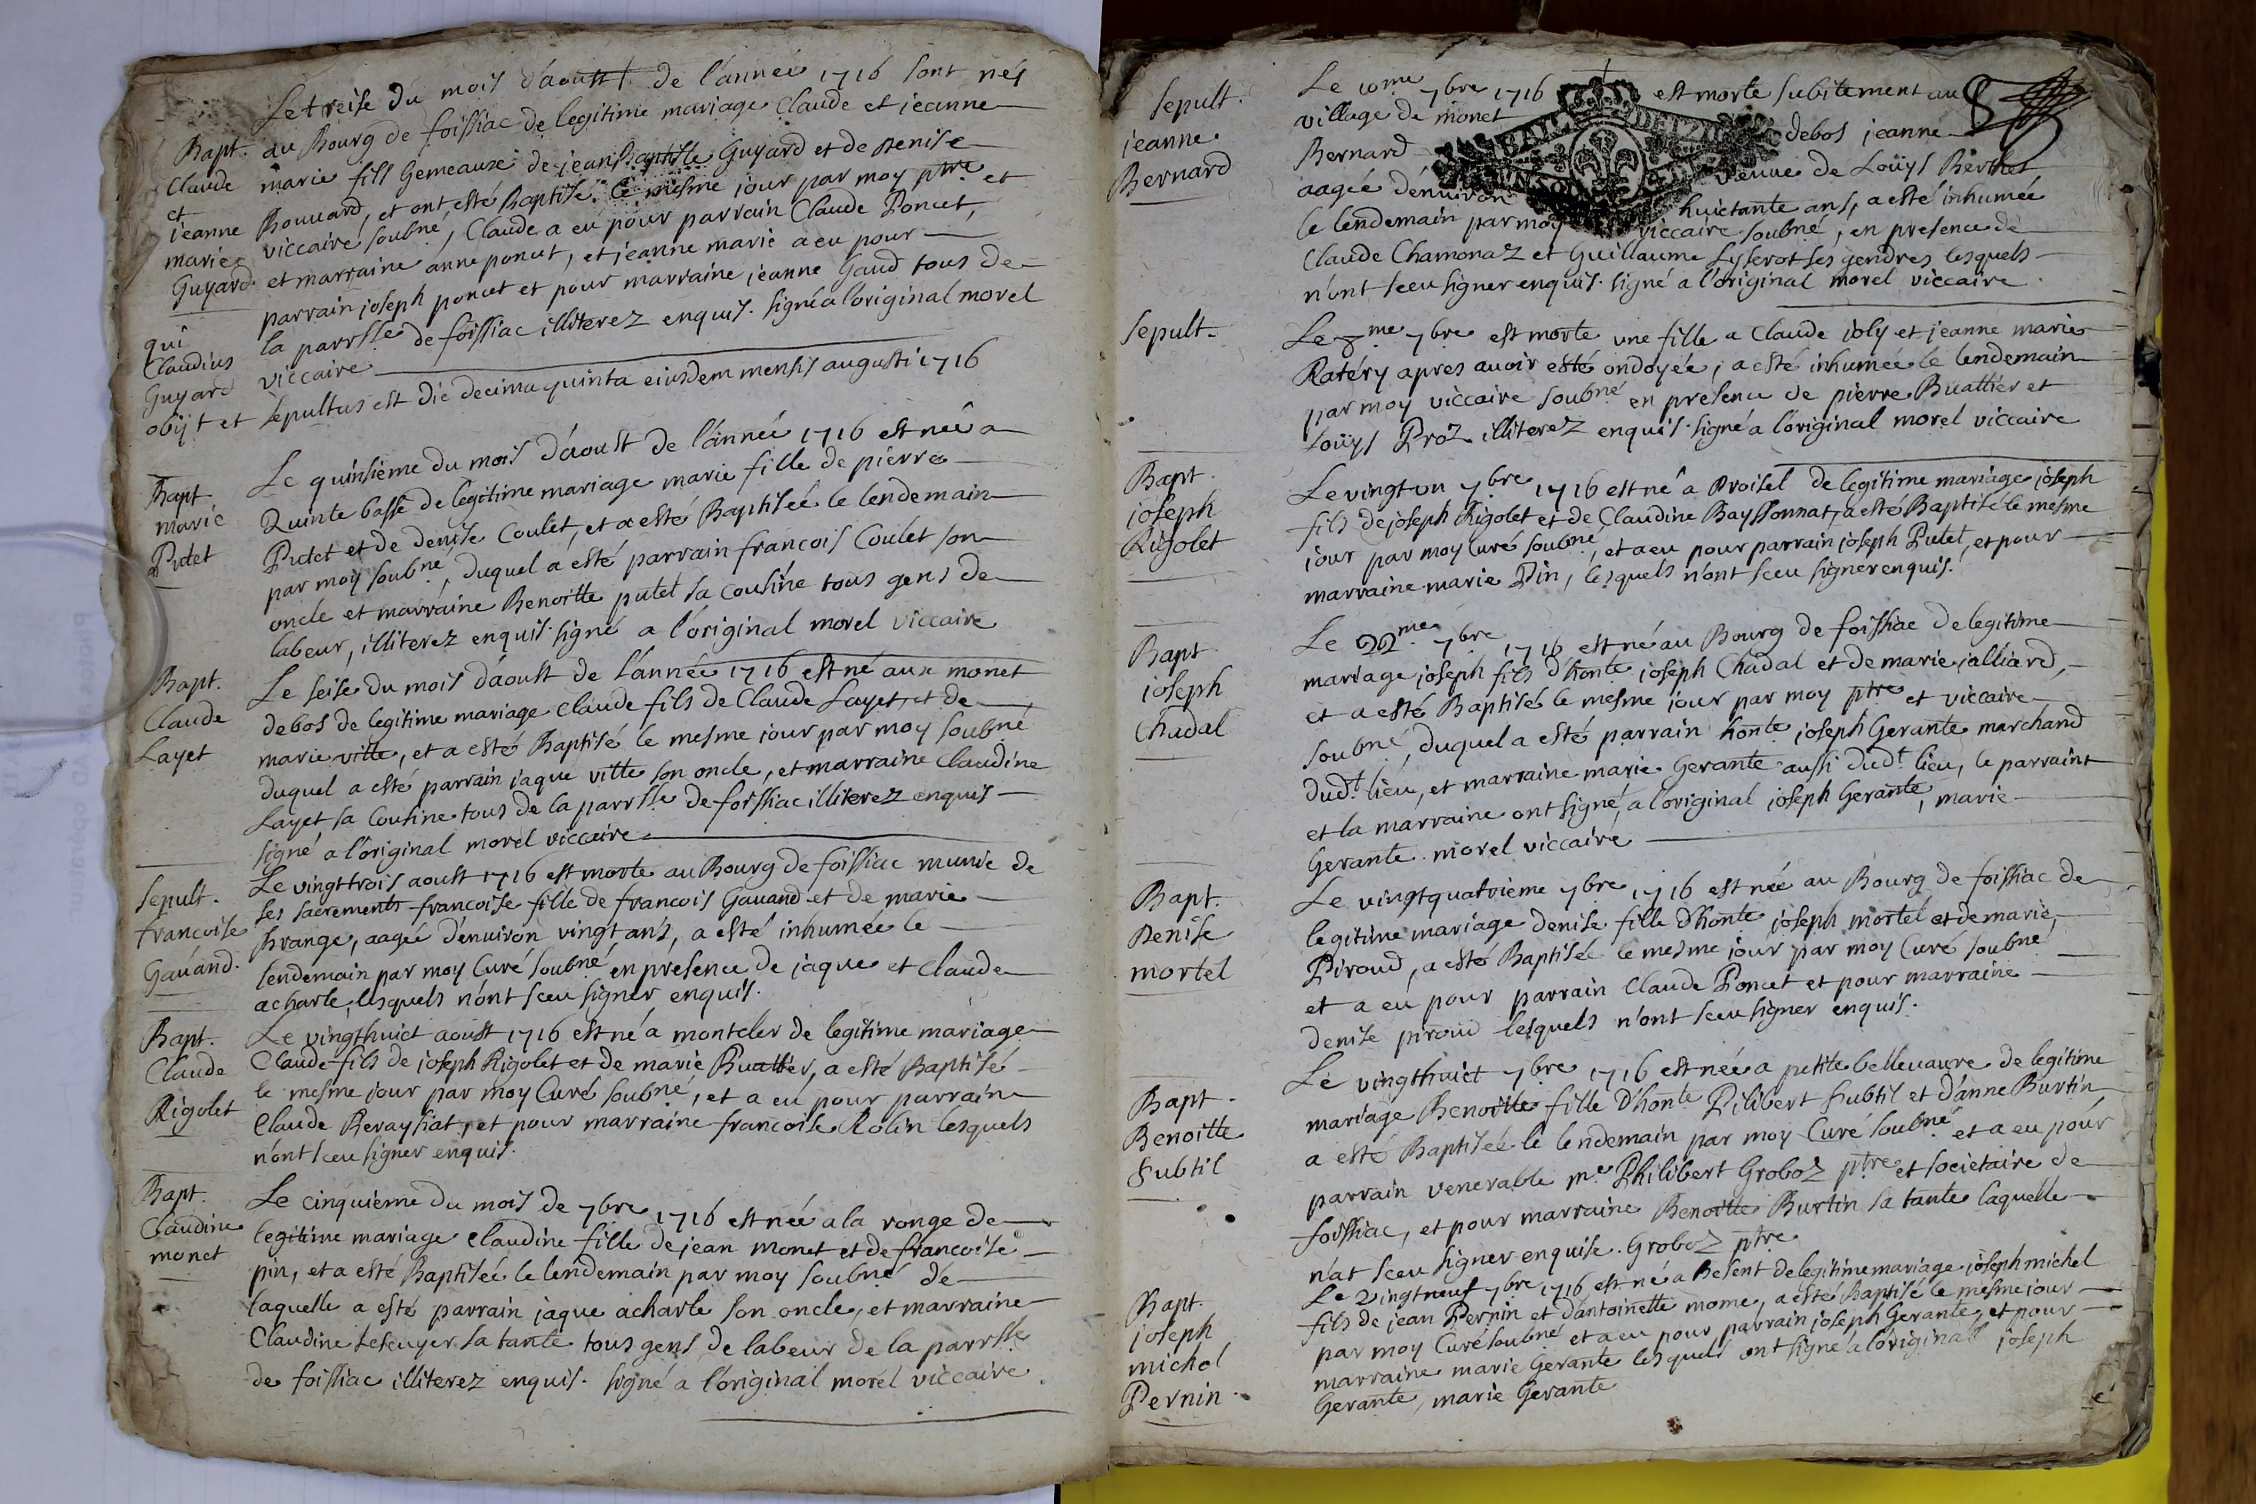 Bapt.
Claude
et
jeanne
marie
Guyard
Le treise du mois d'aoust de l'année 1716 sont nés
au Bourg de foissiac de legitime mariage Claude et jeanne
marie fils Gemeaux de jean Baptiste Guyard et de Denise
Bouuard, et ont esté Baptisé le mesme jour par moy ptre et
viccaire soubné, Claude a eu pour parrain Claude Poncet,
et marraine anne poncet, et jeanne marie a eu pour
parrain joseph poncet et pour marraine jeanne Gaud tous de
la parrsse de foissiac illiterez enquis. signé a l'original morel
viccaire
qui
Claudius
Guyard
obijt et sepultus est die decima quinta eiusdem mensis augusti 1716
Bapt.
marie
Putet
Le quinsieme du mois d'aoust de l'année 1716 est née a
Quinte basse de legitime mariage marie fille de pierre
Putet et de denise Coulet, et a esté Baptisée le lendemain
par moy soubné, duquel a esté parrain francois Coulet son
oncle et marraine Benoitte putet sa cousine tous gens de
labeur, illiterez enquis. signé a l'original morel viccaire
Bapt.
Claude
Layet
Le seise du mois d'aoust de l'année 1716 est né aux monet
debos de legitime mariage Claude fils de Claude Layet, et de
marie ville, et a esté Baptisé le mesme jour par moy soubné
duquel a esté parrain jaque ville son oncle, et marraine Claudine
Layet sa Cousine tous de la parrsse de foissiac illiterez enquis
signé a l'original morel viccaire
Sepult.
francoise
Gauand.
Le vingt trois aoust 1716 est morte au Bourg de foissiac munie de
ses sacrements francoise fille de francois Gauand et de marie
, aagée d'enuiron vingt ans, a esté inhumée le
lendemain par moy Curé soubné en presence de jaque et Claude
acharle, lesquels n'ont sceu signer enquis.
Bapt.
Claude
Rigolet
Le vingt huict aoust 1716 est né a montcler de legitime mariage
Claude fils de joseph Rigolet et de marie Buattier, a esté Baptisé
le mesme jour par moy Curé soubné, et a eu pour parrain
Claude Berayssat, et pour marraine francoise Rolin lesquels
n'ont sceu signer enquis.
Bapt.
Claudine
monet
Le cinquieme du mois de 7bre 1716 est née a la ronge de
legitime mariage Claudine fille de jean monet et de francoise
pin, et a esté Baptisée le lendemain par moy soubné de
laquelle a esté parrain jaque acharle son oncle, et marraine
Claudine Lescuyer sa tante tous gens de labeur de la parrsse
de foissiac illiterez enquis. signé a l'original morel viccaire.
Sepult.
jeanne
Bernard
Le 10me 7bre 1716 est morte subitement au
village de monet debos jeanne
Bernard veuue de Loüys Berthet
aagée d'enuiron huictante ans, a esté inhumée
le lendemain par moy viccaire soubné, en presence de
Claude Chamonaz et Guillaume Lyserot ses gendres lesquels
n'ont sceu signer enquis. signé a l'original morel viccaire.
Sepult.
Le me 7bre est morte une fille a Claude joly et jeanne marie
Ratéry apres auoir esté ondoyée, a esté inhumée le lendemain
par moy viccaire soubné en presence de pierre Buattier et
Loüys Proz illiterez enquis. signé a l'original morel viccaire
Bapt.
joseph
Rigolet
Le vingt un 7bre 1716 est né a Proisel de legitime mariage joseph
fils de joseph Rigolet et de Claudine Bayssonnat, a esté Baptisé le mesme
jour par moy Curé soubné, et a eu pour parrain joseph Putet, et pour
marraine marie Pin, lesquels n'ont sceu signer enquis.
Bapt.
joseph
Chadal
Le 22me 7bre 1716 est né au Bourg de foissiac de legitime
mariage joseph fils d'honte joseph Chadal et de marie jalliard,
et a esté Baptisé le mesme jour par moy ptre et viccaire
soubné, duquel a esté parrain honte joseph Gerante marchand
dudt lieu, et marraine marie Gerante aussi dudt lieu, le parraint
et la marraine ont signé, a l'original joseph Gerante, marie
Gerante. morel viccaire
Bapt.
Denise
mortel
Le vingtquatrieme 7bre 1716 est née au Bourg de foissiac de
legitime mariage denise fille d'honte joseph mortel et de marie
Piroud, a esté Baptisée le mesme jour par moy Curé soubné
et a eu pour parrain Claude Poncet et pour marraine
denise piroud lesquels n'ont sceu signer enquis.
Bapt.
Benoitte
Subtil
Le vingthuict 7bre 1716 est née a petite belleuaure de legitime
mariage Benoitte fille d'honte Pilibert Subtil et d'anne Burtin
a esté Baptisée le lendemain par moy Curé soubné et a eu pour
parrain venerable mre Philibert Groboz ptre et societaire de
foissiac, et pour marraine Benoitte Burtin sa tante laquelle
n'at sceu signer enquise. Groboz ptre
Bapt.
joseph
michel
Pernin
Le vingt neuf 7bre 1716 est né a Besent de legitime mariage joseph michel
fils de jean Pernin et d'antoinette mome, a esté Baptisé le mesme jour
par moy Curé soubné et a eu pour parrain joseph Gerante, et pour
marraine marie Gerante lesquels ont signé a l'original joseph
Gerante, marie Gerante